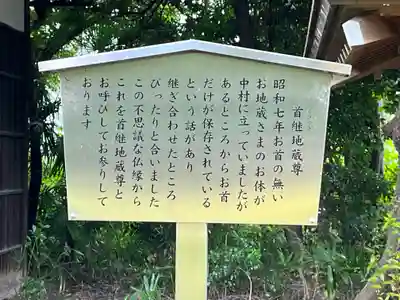 首継地蔵尊
昭和七年お首の無い
お地蔵さまのお体が
中村に立っていましたが
あるところからお首
だけが保存されている
という話があり
継ぎ合わせたところ
ぴったりと合いました
この不思議な仏縁から
これを首継地蔵尊と
お呼びしてお参りして
おります